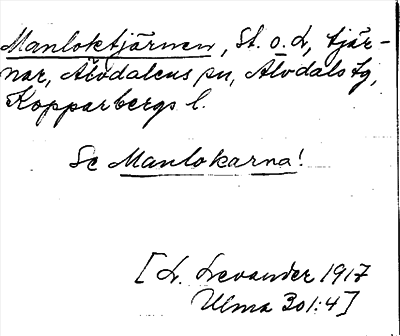 Manloktjärnen, St. o. L, tjär-
nar, Älvdalens sn, Älvdals tg,
Kopparbergs l.
Se Manlokarna!
[L. Levander 1917
Ulma 301:4]